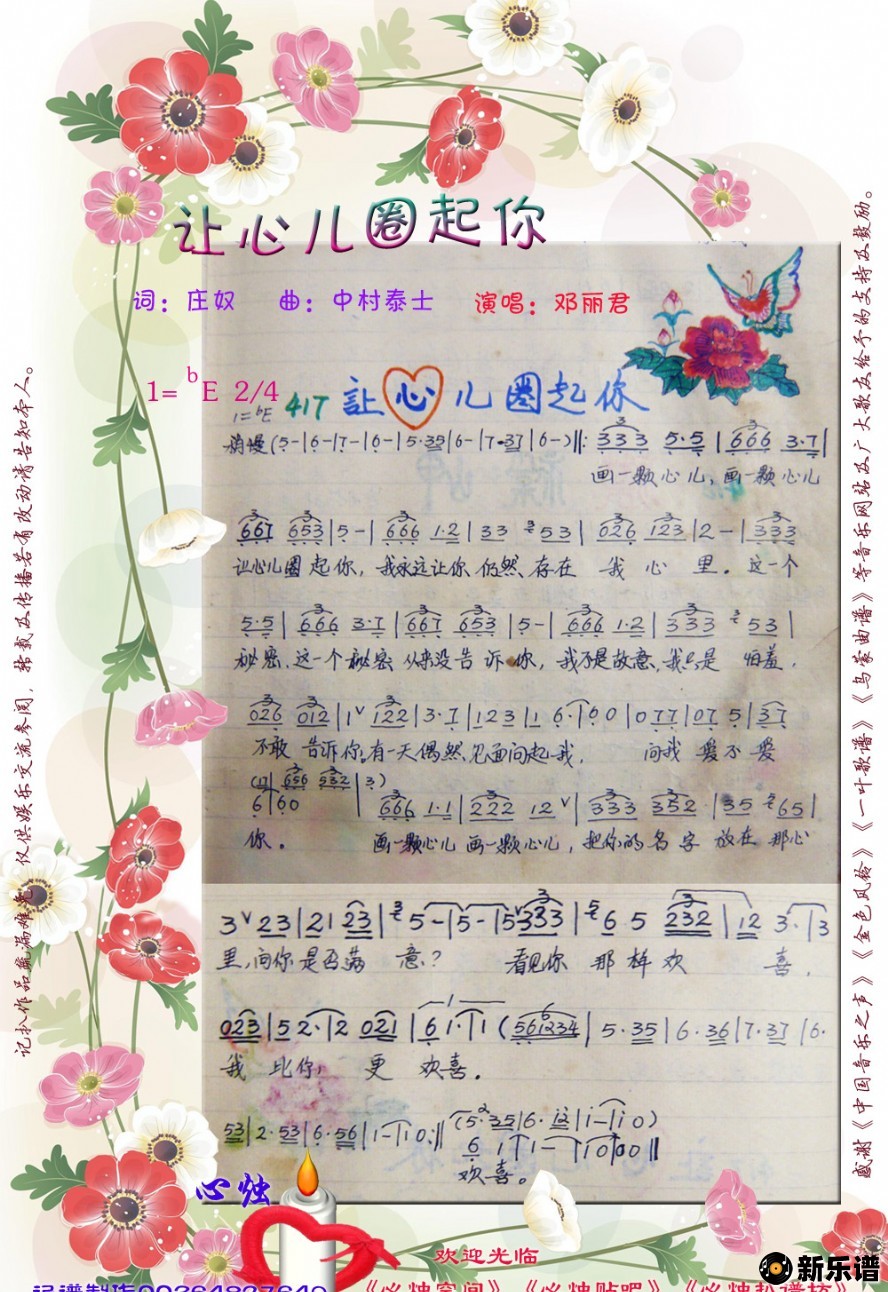 让心儿圈起你
词：庄奴 曲：中村泰士 演唱：邓丽君
1= bE 2/4
1=bE 417 讓心儿圈起你
浪慢 (5-|6-|7-|6-|5·35|6-|7·37|6-)‖: 333 5·5|666 3·7|
画一颗心儿，画一颗心儿
667 653|5-|666 1·2|33 53|026 123|2-|333
让心儿圈起你，我永远让你仍然存在我心里。这一个
5·5|666 3·7|667 653|5-|666 1·2|333 53|
秘密，这一个秘密从来没告诉你，我不是故意，我只是怕羞，
026 012|1∨122|3·7|123|1 6·|60|077|07 5|37
不敢告诉你，有一天偶然见面问起我，问我爱不爱
6|60 666 1·1|222 12∨|333 352|35 65|
你。 画一颗心儿画一颗心儿，把你的名字放在那心
3∨23|21 23|5-|5-|5∨333|6·5 232|12 3·|3
里，问你是否满意？ 看见你那样欢喜，
023|52·|2 021|61·|1 (561234|5·35|6·36|7·37|6·
我比你更欢喜。
53|2·53|6·56|1-|10:‖ (5·35|6·12|1-|10)
6 1|1-|10|00‖
欢喜。
心烛
欢迎光临
《心烛空间》《心烛贴吧》《心烛扒谱坊》
新乐谱
记扒作品疏漏难免，仅供娱乐交流参阅，转载及传播若有改动请告知本人。
感谢《中国音乐之声》《金色风铃》《一叶歌谱》《乌蒙曲谱》等音乐网站及广大歌友给予的支持及鼓励。